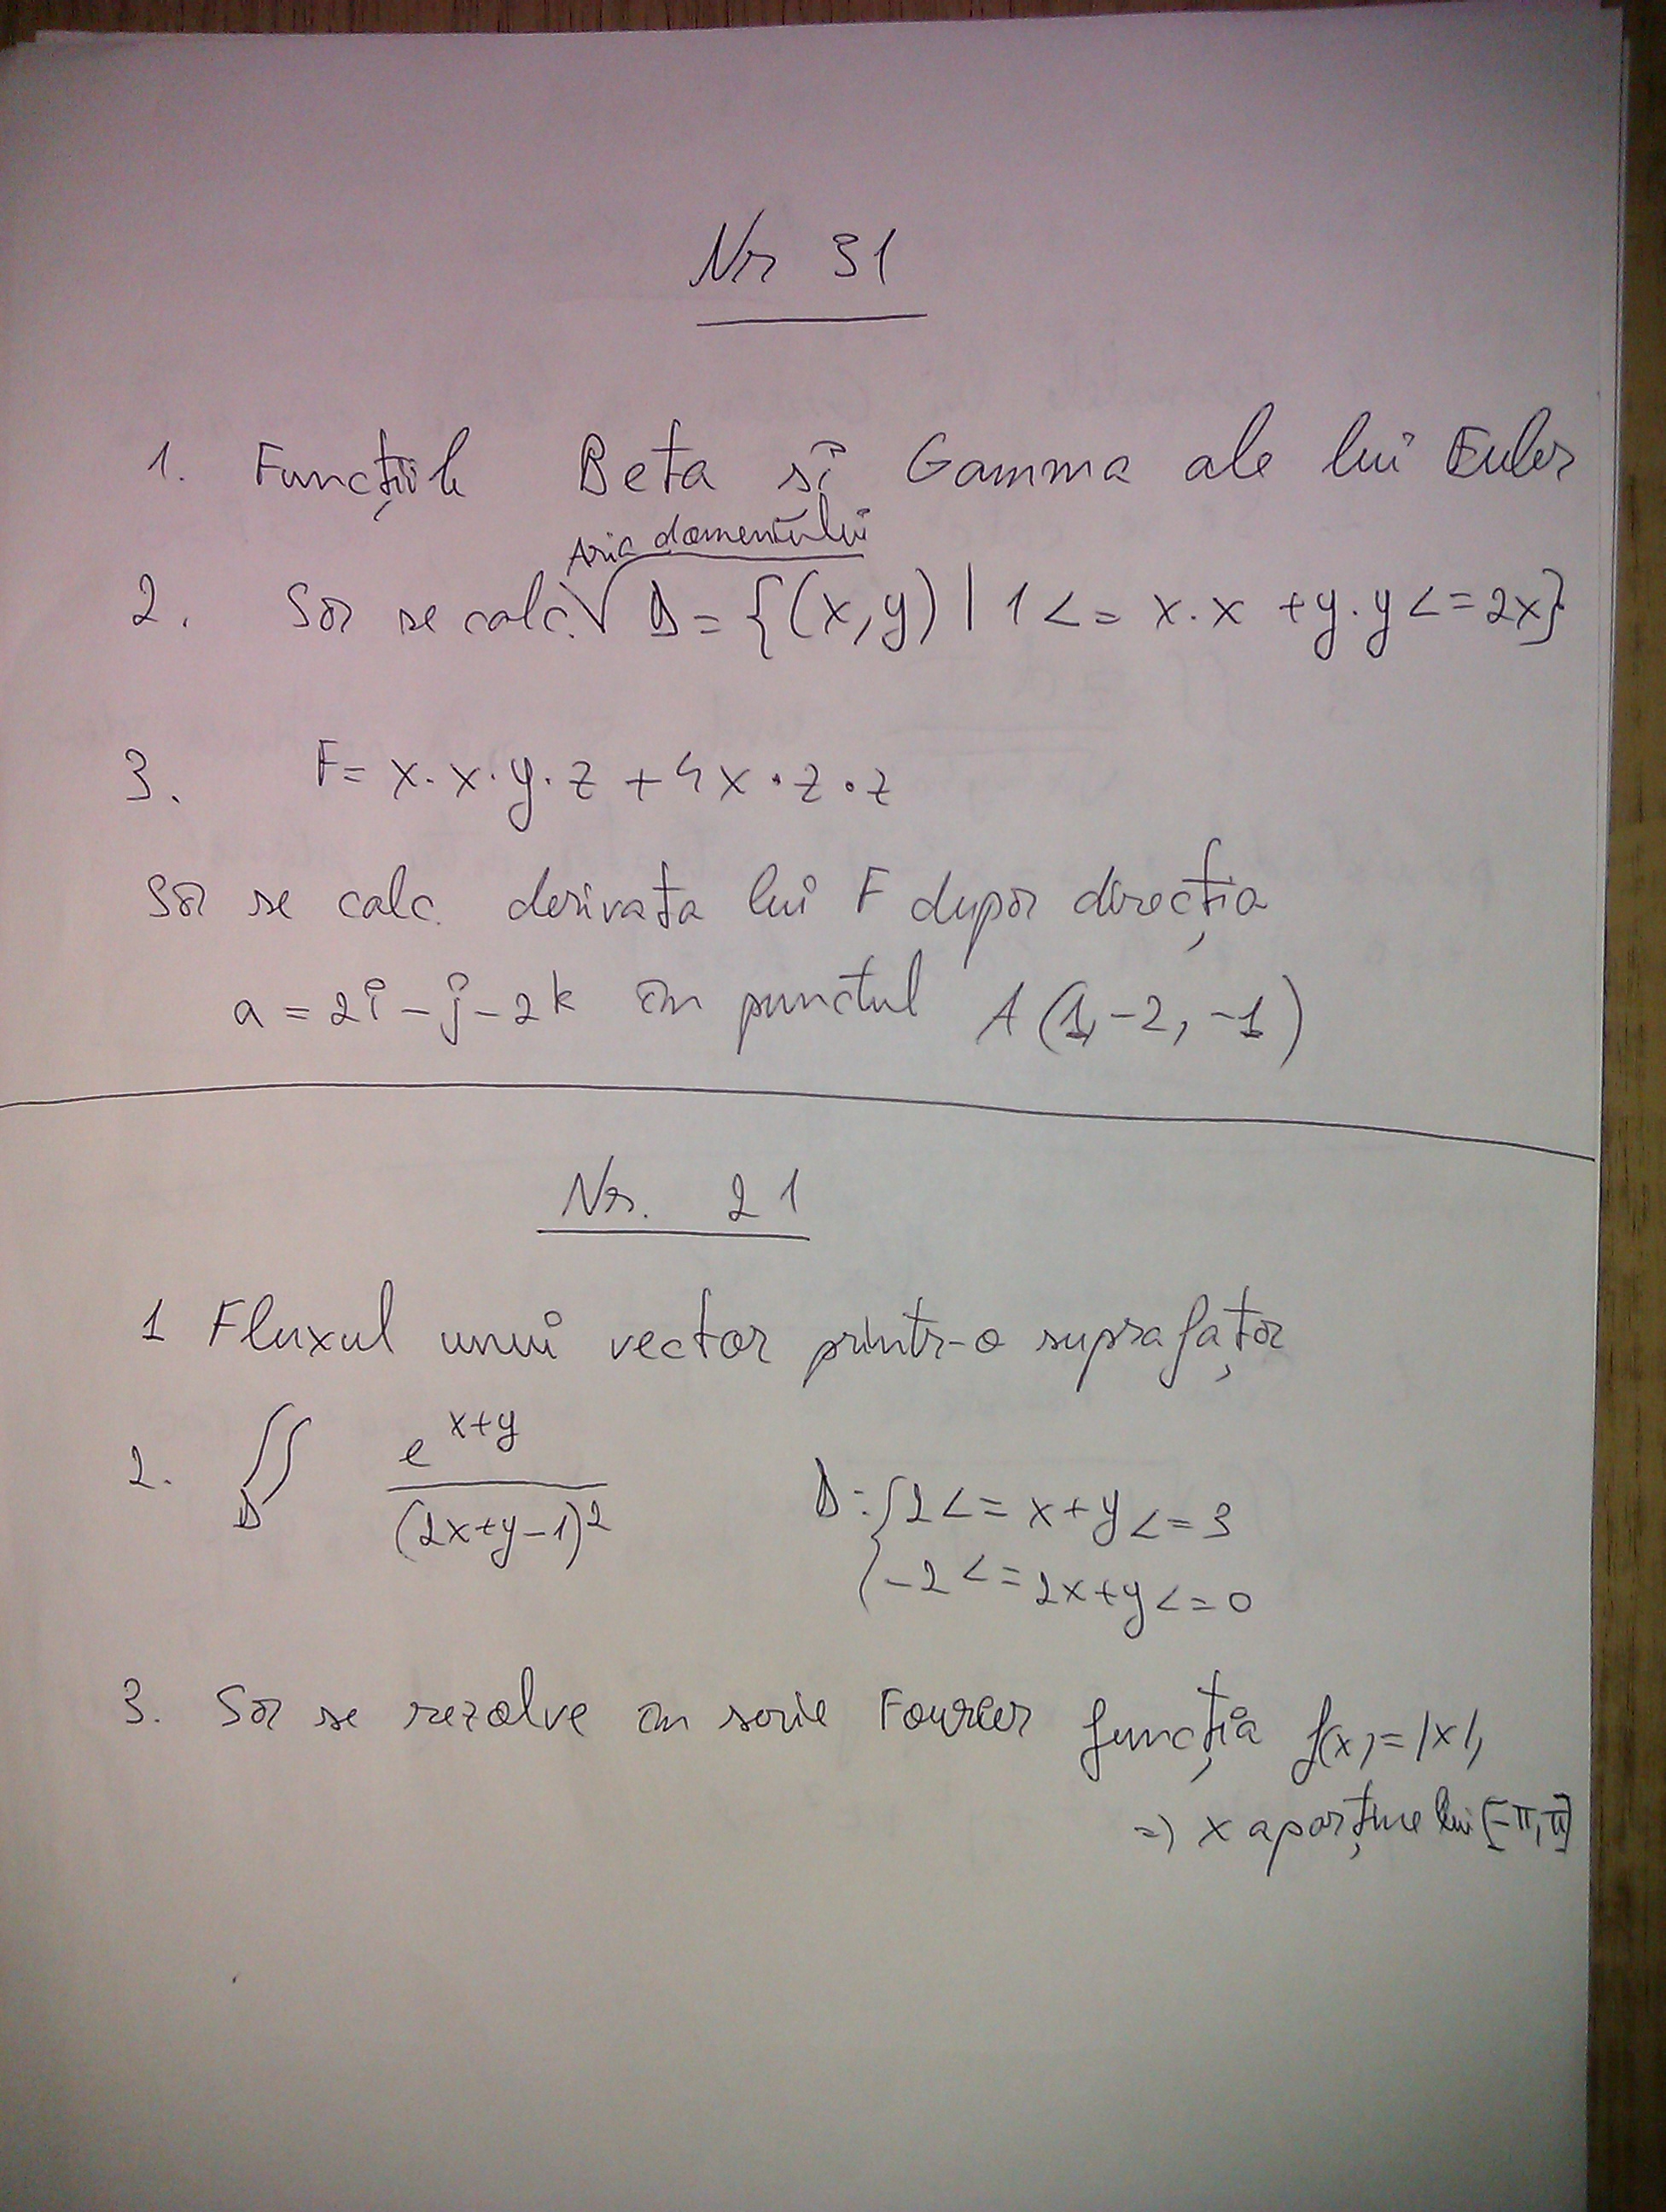 Nr 31
1. Funcțiile Beta și Gamma ale lui Euler
Aria domeniului
2. Să se calc. D = {(x,y) | 1 <= x.x + y.y <= 2x}
3. F = x.x.y.z + 4x.z.z
Să se calc. derivata lui F după direcția
a = 2i - j - 2k în punctul A(1, -2, -1)
Nr. 21
1 Fluxul unui vector printr-o suprafață
2. ∬_D e^(x+y) / (2x+y-1)^2 D: { 2 <= x+y <= 3
-2 <= 2x+y <= 0
3. Să se rezolve în serie Fourier funcția f(x) = |x|,
=> x aparține lui [-π, π]